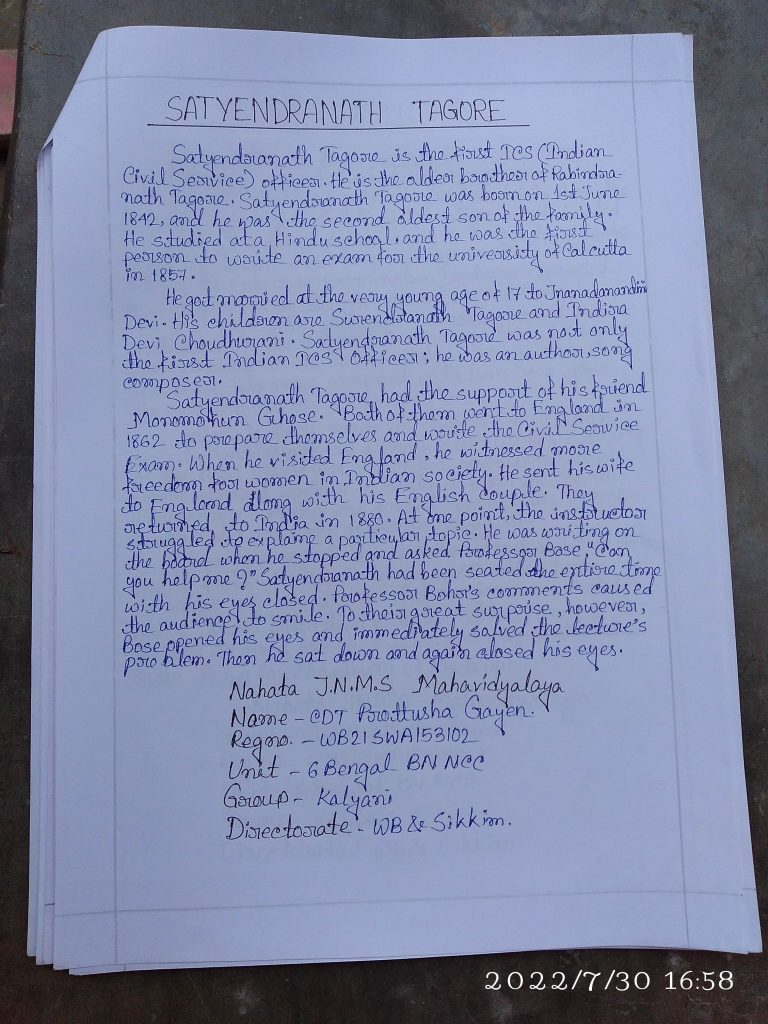 SATYENDRANATH TAGORE
Satyendranath Tagore is the first ICS (Indian
Civil Service) officer. He is the older brother of Rabindra-
nath Tagore. Satyendranath Tagore was born on 1st June
1842, and he was the second oldest son of the family.
He studied at a Hindu school, and he was the first
person to write an exam for the university of Calcutta
in 1857.
He got married at the very young age of 17 to Jnanadanandini
Devi. His children are Surendranath Tagore and Indira
Devi Choudhurani. Satyendranath Tagore was not only
the first Indian ICS Officer; he was an author, song
composer.
Satyendranath Tagore had the support of his friend
Monomohun Ghose. Both of them went to England in
1862 to prepare themselves and write the Civil Service
Exam. When he visited England, he witnessed more
freedom for women in Indian society. He sent his wife
to England along with his English couple. They
returned to India in 1880. At one point, the instructor
struggled to explaine a particular topic. He was writing on
the board when he stopped and asked Professor Bose, "Can
you help me?" Satyendranath had been seated the entire time
with his eyes closed. Professor Bohr's comments caused
the audience to smile. To their great surprise, however,
Bose opened his eyes and immediately solved the lecture's
problem. Then he sat down and again closed his eyes.
Nahata J.N.M.S Mahavidyalaya
Name - CDT Prottusha Gayen.
Regno. - WB21SWA153102
Unit - 6 Bengal BN NCC
Group - Kalyani
Directorate - WB & Sikkim.
2022/7/30 16:58